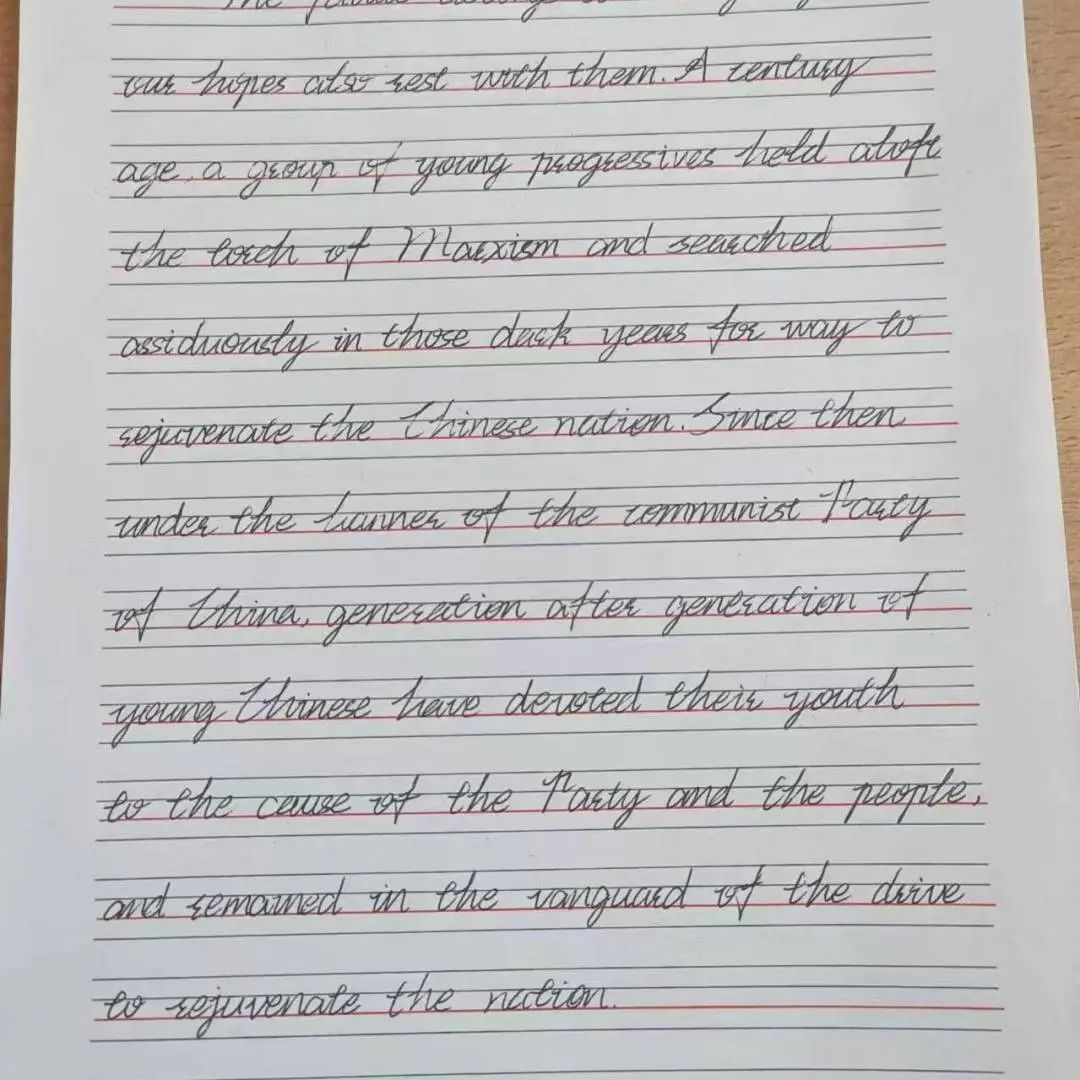 The future belongs to
our hopes also rest with them. A century
age, a group of young progressives held aloft
the torch of Marxism and searched
assiduously in those dark years for way to
rejuvenate the Chinese nation. Since then
under the banner of the communist Party
of China, generation after generation of
young Chinese have devoted their youth
to the cause of the Party and the people,
and remained in the vanguard of the drive
to rejuvenate the nation.